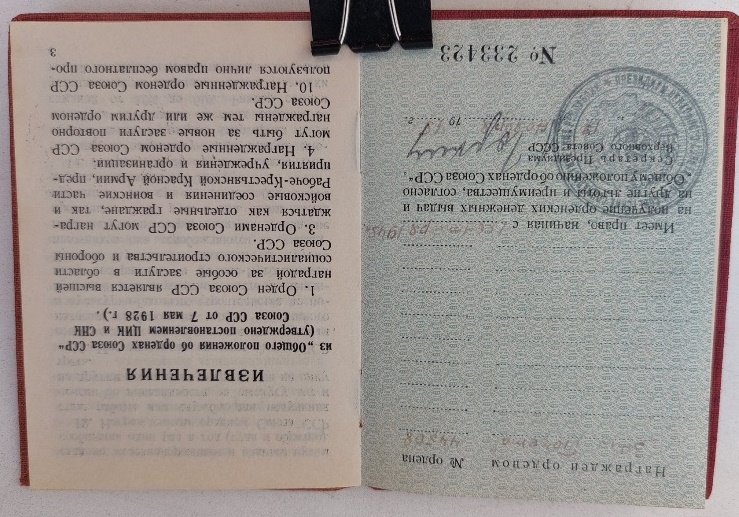 Награжден орденом № ордена
Почета
Имеет право, начиная с
на получение орденских денежных выдач и
на другие льготы и преимущества, согласно
„Общему положению об орденах Союза ССР“.
Секретарь Президиума
Верховного Совета СССР
19 г.
№ 233423
ИЗВЛЕЧЕНИЯ
из „Общего положения об орденах Союза ССР“
(утверждено постановлением ЦИК и СНК
Союза ССР от 7 мая 1928 г.).
1. Орден Союза ССР является высшей
наградой за особые заслуги в области
социалистического строительства и обороны
Союза ССР.
3. Орденами Союза ССР могут награ-
ждаться как отдельные граждане, так и
войсковые соединения и воинские части
Рабоче-Крестьянской Красной Армии, пред-
приятия, учреждения и организации.
4. Награжденные орденом Союза ССР
могут быть за новые заслуги повторно
награждены тем же или другим орденом
Союза ССР.
10. Награжденные орденом Союза ССР
пользуются лично правом бесплатного про-
3